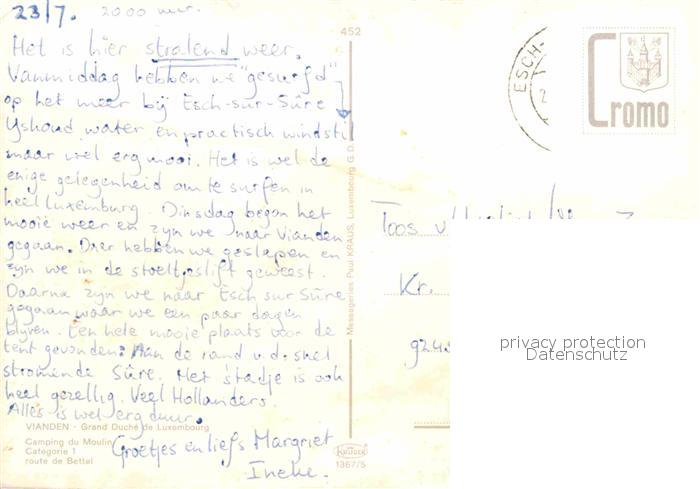 23/7. 2000 uur.
Het is hier stralend weer.
Vanmiddag hebben we "gesurfd"
op het meer bij Esch-sur-Sûre
Yshoud water en practisch windstil
maar wel erg mooi. Het is wel de
enige gelegenheid om te surfen in
heel Luxemburg. Dinsdag begon het
mooie weer en zijn we naar Vianden
gegaan. Daar hebben we geslapen en
zijn we in de stoeltjeslift geweest.
Daarna zijn we naar Esch sur Sûre
gegaan waar we een paar dagen
blijven. Een hele mooie plaats voor de
tent gevonden: Aan de rand v.d. snel
stromende Sûre. Het stadje is ook
heel gezellig. Veel Hollanders.
Alles is wel erg duur.
Groetjes en liefs Margriet
Ineke.
VIANDEN - Grand Duché de Luxembourg
Camping du Moulin
Catégorie 1
route de Bettel
452
Messageries Paul KRAUS, Luxembourg G.D.
KRÜGER
1367/5
ESCH-
2
Cromo
Toos
Kr.
privacy protection
Datenschutz